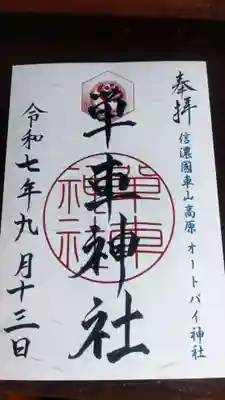 奉拝
信濃國車山高原 オートバイ神社
単車神社
単車神社
令和七年九月十三日